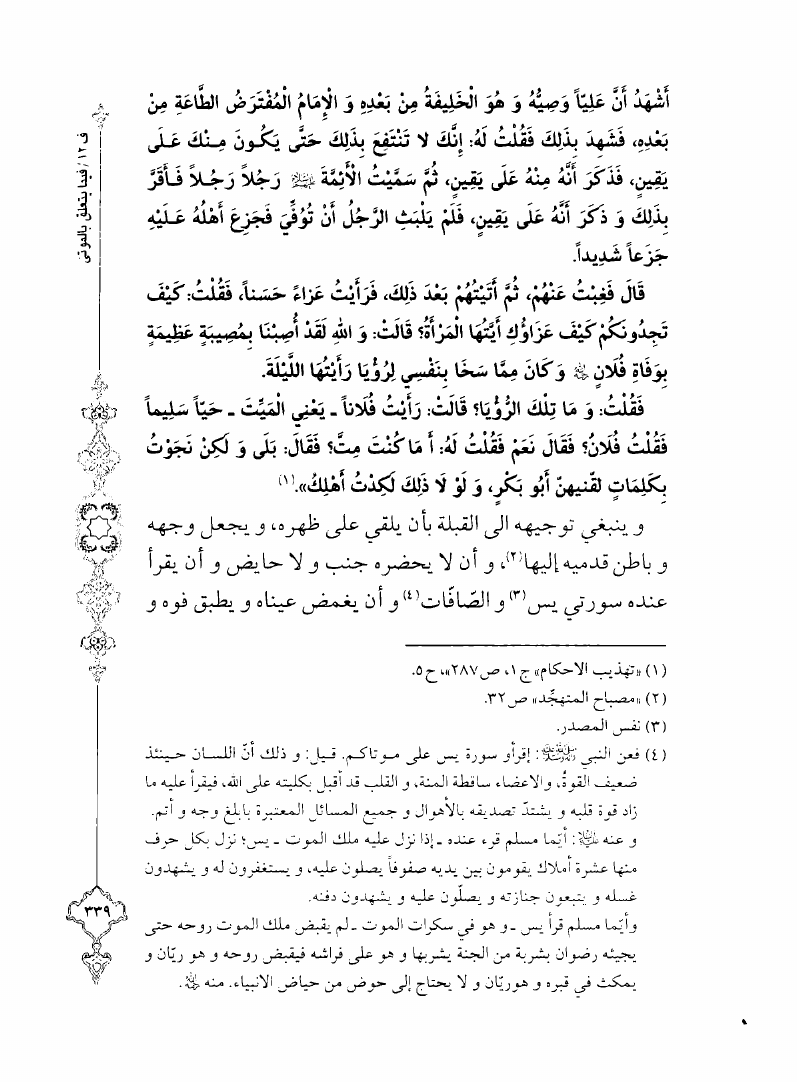 أَشْهَدُ أَنَّ عَلِيّاً وَصِيُّهُ وَ هُوَ الْخَلِيفَةُ مِنْ بَعْدِهِ وَ الْإِمَامُ الْمُفْتَرَضُ الطَّاعَةِ مِنْ
بَعْدِهِ، فَشَهِدَ بِذَلِكَ فَقُلْتُ لَهُ: إِنَّكَ لا تَنْتَفِعَ بِذَلِكَ حَتَّى يَكُونَ مِنْكَ عَلَى
يَقِينٍ، فَذَكَرَ أَنَّهُ مِنْهُ عَلَى يَقِينٍ، ثُمَّ سَمَّيْتُ الْأَئِمَّةَ رَجُلاً رَجُلاً فَأَقَرَّ
بِذَلِكَ وَ ذَكَرَ أَنَّهُ عَلَى يَقِينٍ، فَلَمْ يَلْبَثِ الرَّجُلُ أَنْ تُوُفِّيَ فَجَزِعَ أَهْلُهُ عَلَيْهِ
جَزَعاً شَدِيداً.
قَالَ فَغِبْتُ عَنْهُمْ، ثُمَّ أَتَيْتُهُمْ بَعْدَ ذَلِكَ، فَرَأَيْتُ عَزاءً حَسَناً، فَقُلْتُ: كَيْفَ
تَجِدُونَكُمْ كَيْفَ عَزَاؤُكِ أَيَّتُهَا الْمَرْأَةُ؟ قَالَتْ: وَ اللهِ لَقَدْ أُصِبْنَا بِمُصِيبَةٍ عَظِيمَةٍ
بِوَفَاةِ فُلَانٍ وَ كَانَ مِمَّا سَخَا بِنَفْسِي لِرُؤْيَا رَأَيْتُهَا اللَّيْلَةَ.
فَقُلْتُ: وَ مَا تِلْكَ الرُّؤْيَا؟ قَالَتْ: رَأَيْتُ فُلَاناً ـ يَعْنِي الْمَيِّتَ ـ حَيّاً سَلِيماً
فَقُلْتُ فُلَانٌ؟ فَقَالَ نَعَمْ فَقُلْتُ لَهُ: أَ مَا كُنْتَ مِتَّ؟ فَقَالَ: بَلَى وَ لَكِنْ نَجَوْتُ
بِكَلِمَاتٍ لَقَّنِيهِنَّ أَبُو بَكْرٍ، وَ لَوْ لَا ذَلِكَ لَكِدْتُ أَهْلِكُ».(١)
و ينبغي توجيهه الى القبلة بأن يلقي على ظهره، و يجعل وجهه
و باطن قدميه إليها(٢)، و أن لا يحضره جنب و لا حايض و أن يقرأ
عنده سورتي يس(٣) و الصّافّات(٤) و أن يغمض عيناه و يطبق فوه و
(١) «تهذيب الاحكام» ج ١، ص ٢٨٧»، ح ٥.
(٢) «مصباح المتهجّد» ص ٣٢.
(٣) نفس المصدر.
(٤) فعن النبي ﷺ: إقرأو سورة يس على موتاكم. قيل: و ذلك أنّ اللسان حينئذ
ضعيف القوةُ، والاعضاء ساقطة المنة، و القلب قد أقبل بكليته على الله، فيقرأ عليه ما
زاد قوة قلبه و يشتدّ تصديقه بالأهوال و جميع المسائل المعتبرة بابلغ وجه و أتم.
و عنه: أيّما مسلم قرء عنده ـ إذا نزل عليه ملك الموت ـ يس؛ نزل بكل حرف
منها عشرة أملاك يقومون بين يديه صفوفاً يصلون عليه، و يستغفرون له و يشهدون
غسله و يتبعون جنازته و يصلّون عليه و يشهدون دفنه.
وأيّما مسلم قرأ يس ـ و هو في سكرات الموت ـ لم يقبض ملك الموت روحه حتى
يجيئه رضوان بشربة من الجنة يشربها و هو على فراشه فيقبض روحه و هو ريّان و
يمكث في قبره و هو ريّان و لا يحتاج إلى حوض من حياض الانبياء. منه.
ف ١٢ / فيما يتعلق بالموتى
٣٣٩